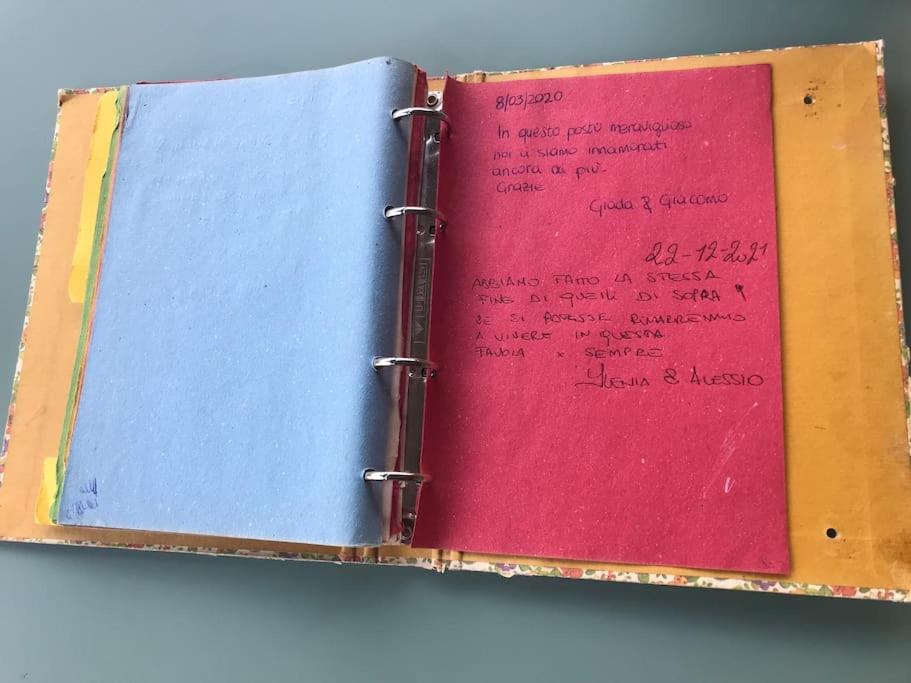 8/03/2020
In questo posto meraviglioso
noi ci siamo innamorati
ancora di più.
Grazie
Giada & Giacomo
22-12-2021
ABBIAMO FATTO LA STESSA
FINE DI QUELLI DI SOPRA
SE SI POTESSE RIMARREMMO
A VIVERE IN QUESTA
FAVOLA x SEMPRE
YLENIA & ALESSIO